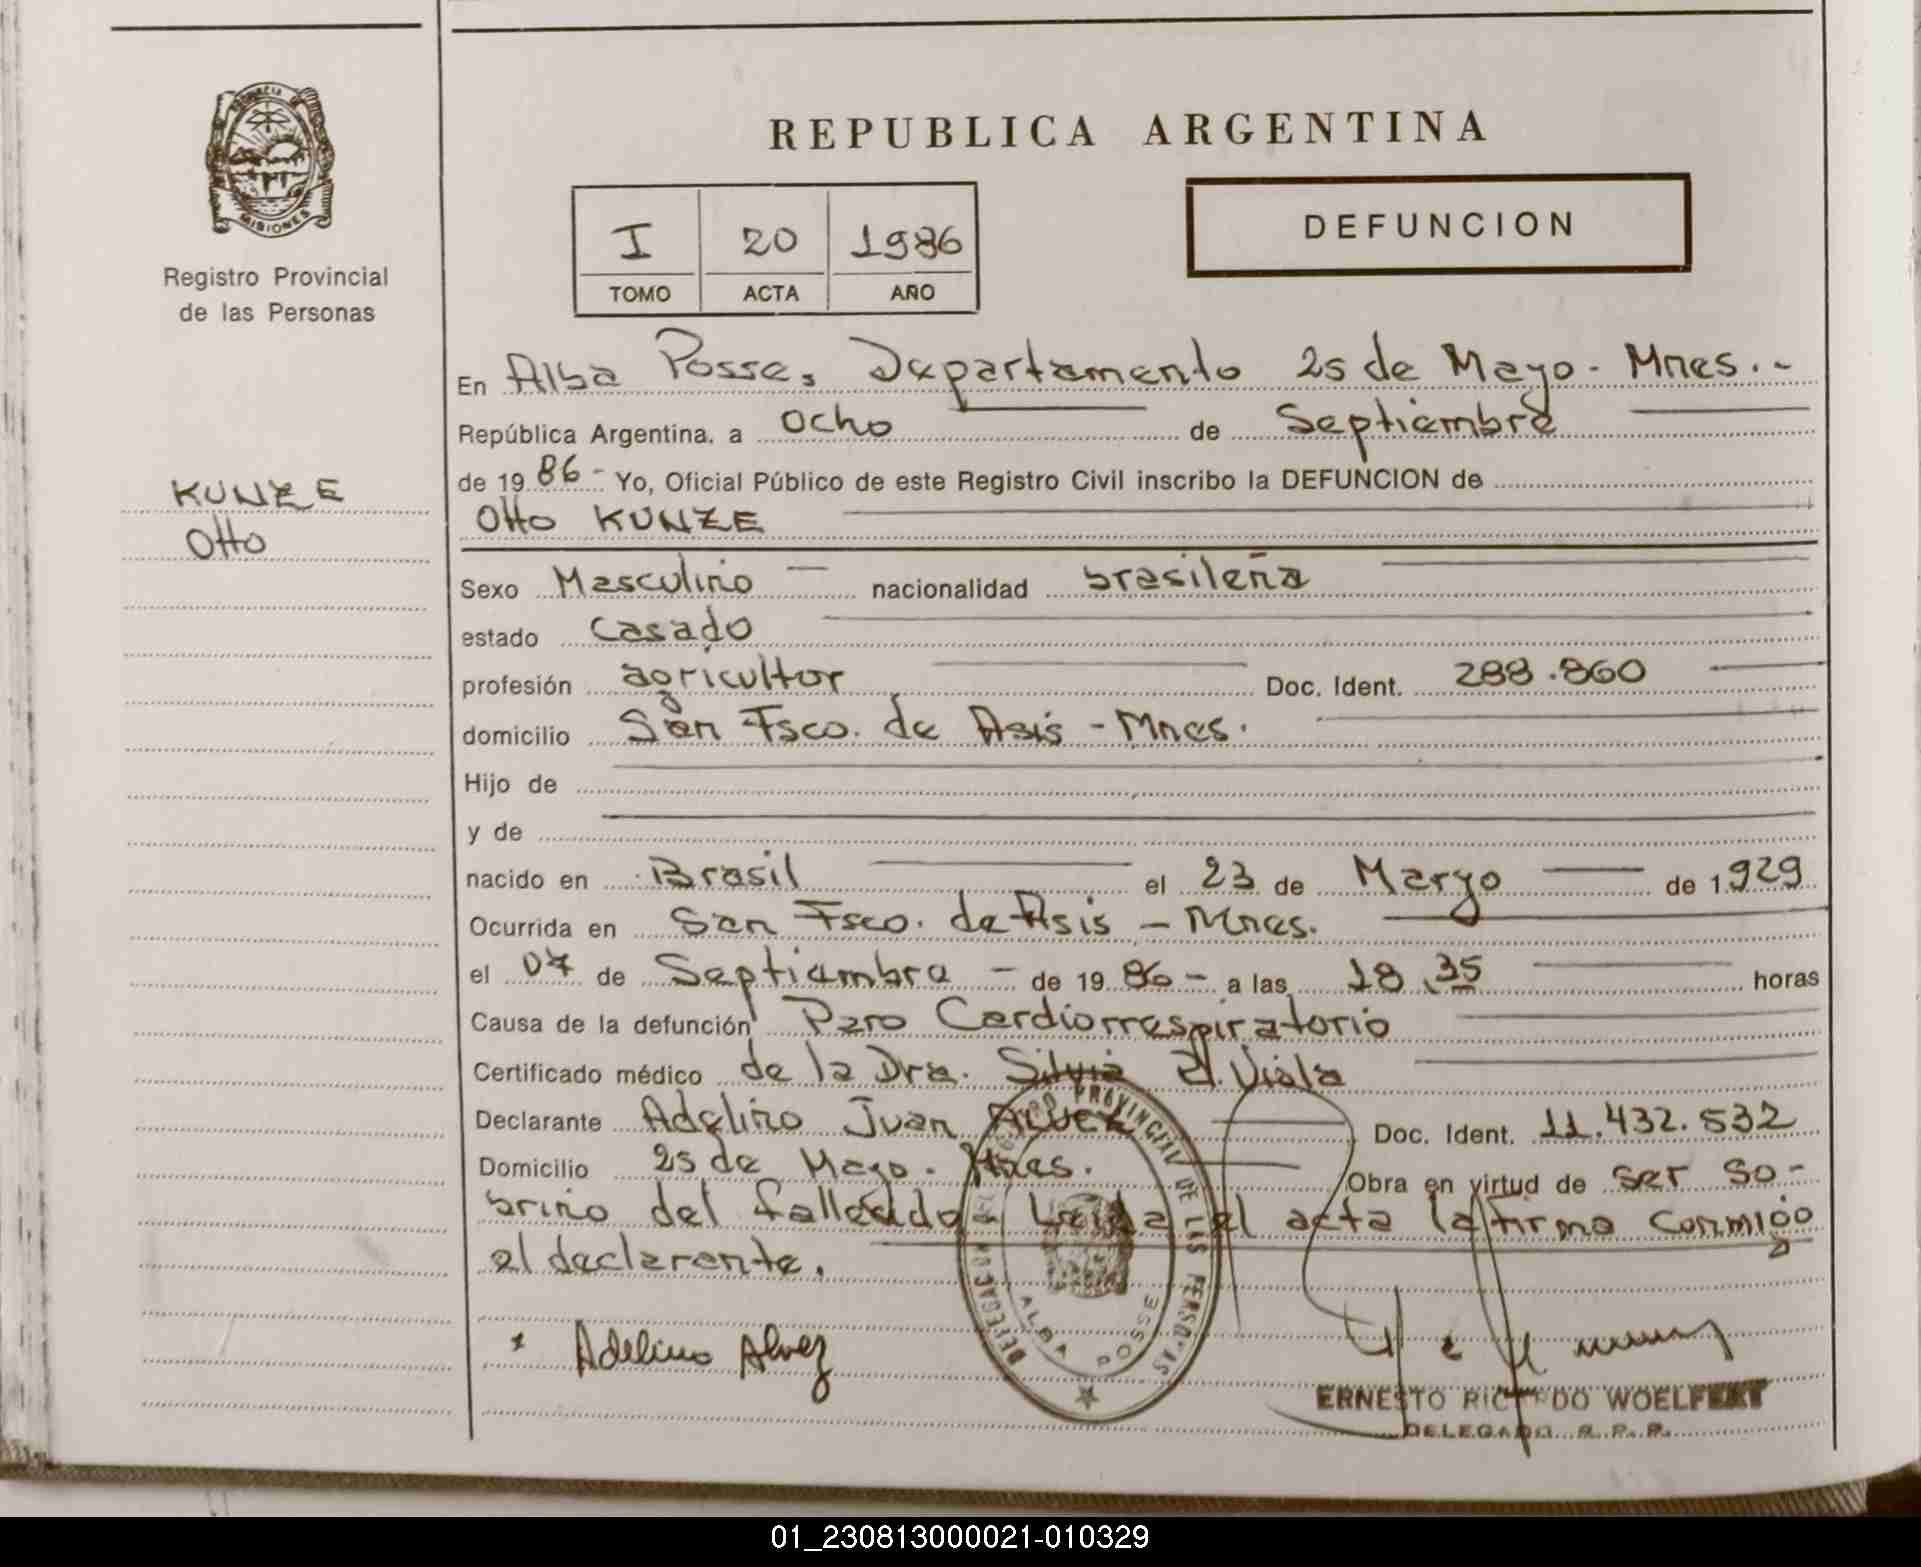 REPUBLICA ARGENTINA
PROVINCIA DE
MISIONES
Registro Provincial
de las Personas
I 20 1986
TOMO ACTA AÑO
DEFUNCION
KUNZE
Otto
En Alba Posse, Departamento 25 de Mayo - Mnes. -
República Argentina, a ocho de Septiembre
de 19 86 - Yo, Oficial Público de este Registro Civil inscribo la DEFUNCION de
Otto KUNZE
Sexo Masculino nacionalidad brasileña
estado Casado
profesión agricultor Doc. Ident. 288.860
domicilio San Fsco. de Asis - Mnes.
Hijo de
y de
nacido en Brasil el 23 de Marzo de 1929
Ocurrida en San Fsco. de Asis - Mnes.
el 07 de Septiembre - de 19 86 - a las 18,35 horas
Causa de la defunción Paro Cardiorrespiratorio
Certificado médico de la Dra. Silvia Viala
Declarante Adelino Juan ALVEZ Doc. Ident. 11.432.532
Domicilio 25 de Mayo. Mnes. Obra en virtud de ser so-
brino del fallecido Leida el acta la firma conmigo
el declarante.
DELEGACION REGISTRO PROVINCIAL DE LAS PERSONAS
ALBA POSSE
Adelino Alvez
ERNESTO RICARDO WOELFERT
DELEGADO R. P. P.
01_230813000021-010329